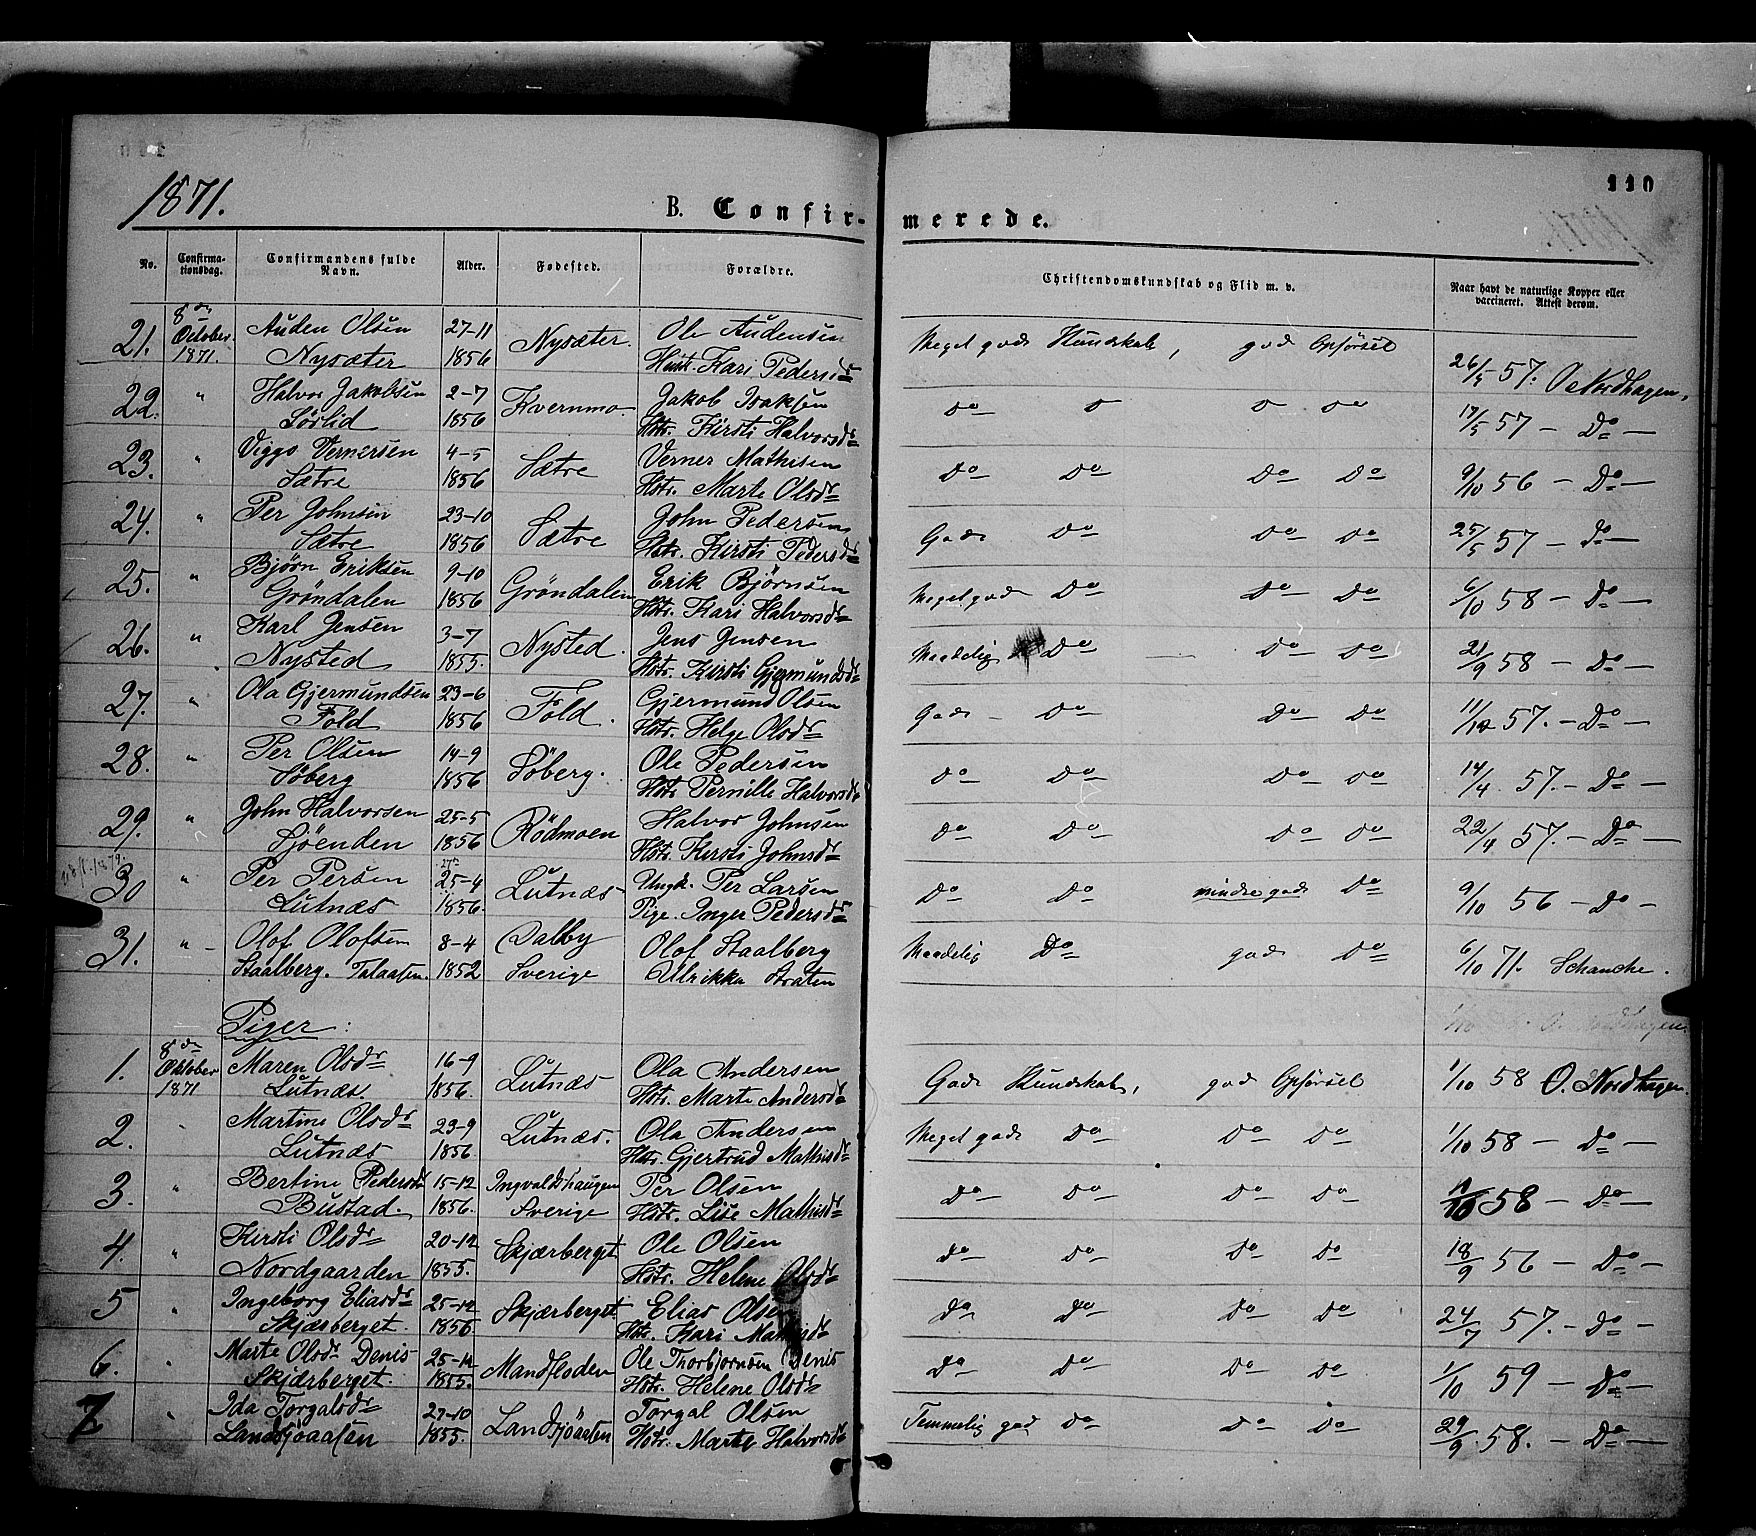 1871.
110
B. Confirmerede.
No. Confirmationsdag. Confirmandens fulde Navn. Alder. Fødested. Forældre. Christendomskundskab og Flid m. v. Naar havt de naturlige Kopper eller vaccineret. Attest derom.
21. 8de October 1871. Auden Olsen Nysæter 27-11 1856 Nysæter. Ole Audensen Hust. Kari Pedersdr Meget god Kundskab, god Opførsel 26/5 57. O. Nordhagen.
22. " Halvor Jakobsen Sørlid 2-7 1856 Kvernmo. Jakob Isaksen Hstr. Kirsti Halvorsdr do do do do 17/5 57 - Do -
23. " Viggo Vernersen Sætre 4-5 1856 Sætre Verner Mathisen Hstr. Marte Olsdr Do Do Do Do 9/10 56 - Do -
24. " Per Johnsen Sætre 23-10 1856 Sætre John Pedersen Hstr. Kirsti Pedersdr God Do Do Do 25/5 57 - do -
25. " Bjørn Eriksen Grøndalen 9-10 1856 Grøndalen Erik Bjørnsen Hstr. Kari Halvorsdr Meget god Do Do Do 6/10 58 - Do -
26. " Karl Jensen Nysted 3-7 1855. Nysted. Jens Jensen Hstr. Kirsti Gjermundsdr Maadelig Do Do Do 21/9 58 - Do -
27. " Ola Gjermundsen Fold 23-6 1856 Fold. Gjermund Olsen Hstr. Helge Olsdr God - Do Do Do 11/10 57. - Do -
28. " Per Olsen Søberg 14-9 1856 Søberg. Ole Pedersen Hstr Pernille Halvorsdr Do Do Do Do 14/4 57. - Do -
29. " John Halvorsen Sjøenden 25-5 1856 Rødmoen Halvor Johnsen Hstr. Kirsti Johnsdr Do Do Do Do 22/4 57. - Do -
30 " Per Persen Lutnæs 25-4 1856. Lutnæs Ungk. Per Larsen Pige. Inger Pedersdr Do Do mindre god Do 9/10 56 - Do -
31. " - Olof Olofsen Staalberg. Talaasen. 8-4 1852 Dalby Sverige Olof Staalberg Ulrikka Straten Maadelig Do god Do 6/10 71. Schanche.
Piger:
1. 8de Oktober 1871 Maren Olsdr Lutnæs. 16-9 1856. Lutnæs Ola Andersen Hstr. Marte Andersdr God Kundskab, god Opførsel 1/10 58 O. Nordhagen.
2. " Martine Olsdr Lutnæs 23-9 1856. Lutnæs. Ola Andersen Hstr. Gjertrud Mathisdr Meget god Do Do Do 1/10 58 - Do -
3. " Bertine Pedersdr Bustad. 15-12 1856. Ingvaldshaugen Sverige Per Olsen Hstr. Lise Mathisdr Do Do Do Do 11/10 58 - Do -
4. " Kirsti Olsdr Nordgaarden 20-12 1855. Skjærberget Ole Olsen Hstr. Helene Olsdr Do Do Do Do 18/9 56 - Do -
5 " Ingeborg Eliasdr Skjærberget. 25-12 1856 Skjærberget Elias Olsen Hstr. Kari Mathisdr Do Do Do Do 24/7 57. - Do -
6. " Marte Olsdr Denis Skjærberget. 25-12 1855. Mandfloden Ole Thorbjørnsen Denis Hstr. Helene Olsdr Do Do Do Do 1/10 59 - Do -
7 " Ida Torgalsdr Landsjøaasen 27-10 1855. Landsjøaasen Torgal Olsen Hstr. Marte Halvorsdr Temmelig god do Do Do 29/9 58. - Do -